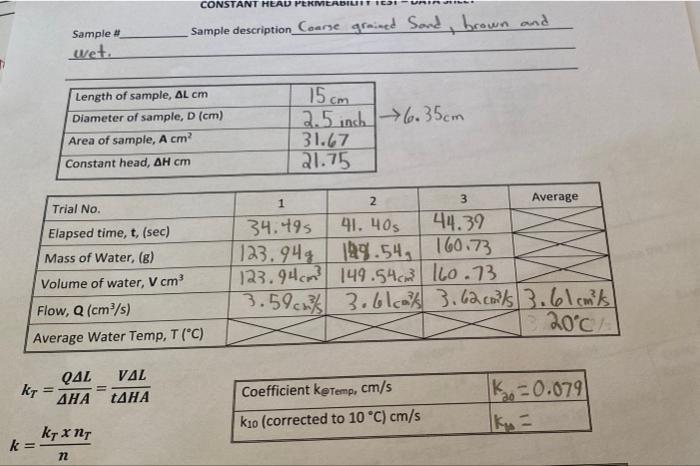 CONSTANT HEAD PERMEABILITY TEST – DATA SHEET
Sample # Sample description Coarse grained Sand, brown and
wet.
Length of sample, ΔL cm 15 cm
Diameter of sample, D (cm) 2.5 inch →6.35cm
Area of sample, A cm² 31.67
Constant head, ΔH cm 21.75
Trial No. 1 2 3 Average
Elapsed time, t, (sec) 34.49s 41.40s 44.39
Mass of Water, (g) 123.94g 149.54g 160.73
Volume of water, V cm³ 123.94cm³ 149.54cm³ 160.73
Flow, Q (cm³/s) 3.59cm³/s 3.61cm³/s 3.62cm³/s 3.61cm³/s
Average Water Temp, T (°C) 20°C
k_T = QΔL/ΔHA = VΔL/tΔHA
Coefficient k@Temp, cm/s K₂₀ = 0.079
k = k_T x n_T/n
k₁₀ (corrected to 10 °C) cm/s K₁₀ =